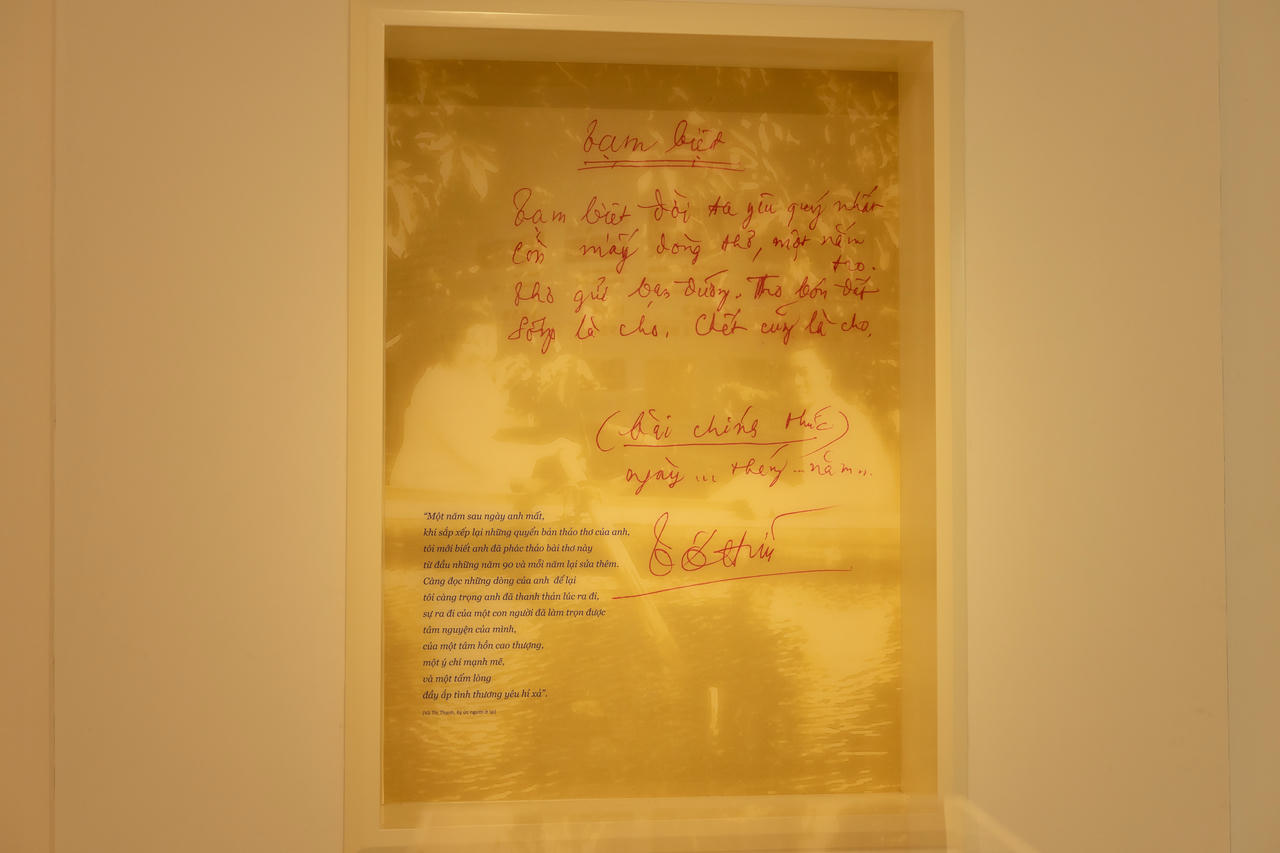 Tạm biệt
Tạm biệt đời ta yêu quý nhất
Còn mấy dòng thơ, một nắm
tro.
Thơ gửi bạn đường. Tro bón đất
Sống là cho. Chết cũng là cho.
(bài chính thức)
ngày ... tháng ... năm ...
Tố Hữu
“Một năm sau ngày anh mất,
khi sắp xếp lại những quyển bản thảo thơ của anh,
tôi mới biết anh đã phác thảo bài thơ này
từ đầu những năm 90 và mỗi năm lại sửa thêm.
Càng đọc những dòng của anh để lại
tôi càng trọng anh đã thanh thản lúc ra đi,
sự ra đi của một con người đã làm trọn được
tâm nguyện của mình,
của một tâm hồn cao thượng,
một ý chí mạnh mẽ,
và một tấm lòng
đầy ắp tình thương yêu hỉ xả”.
(Vũ Thị Thanh, Ký ức người ở lại)